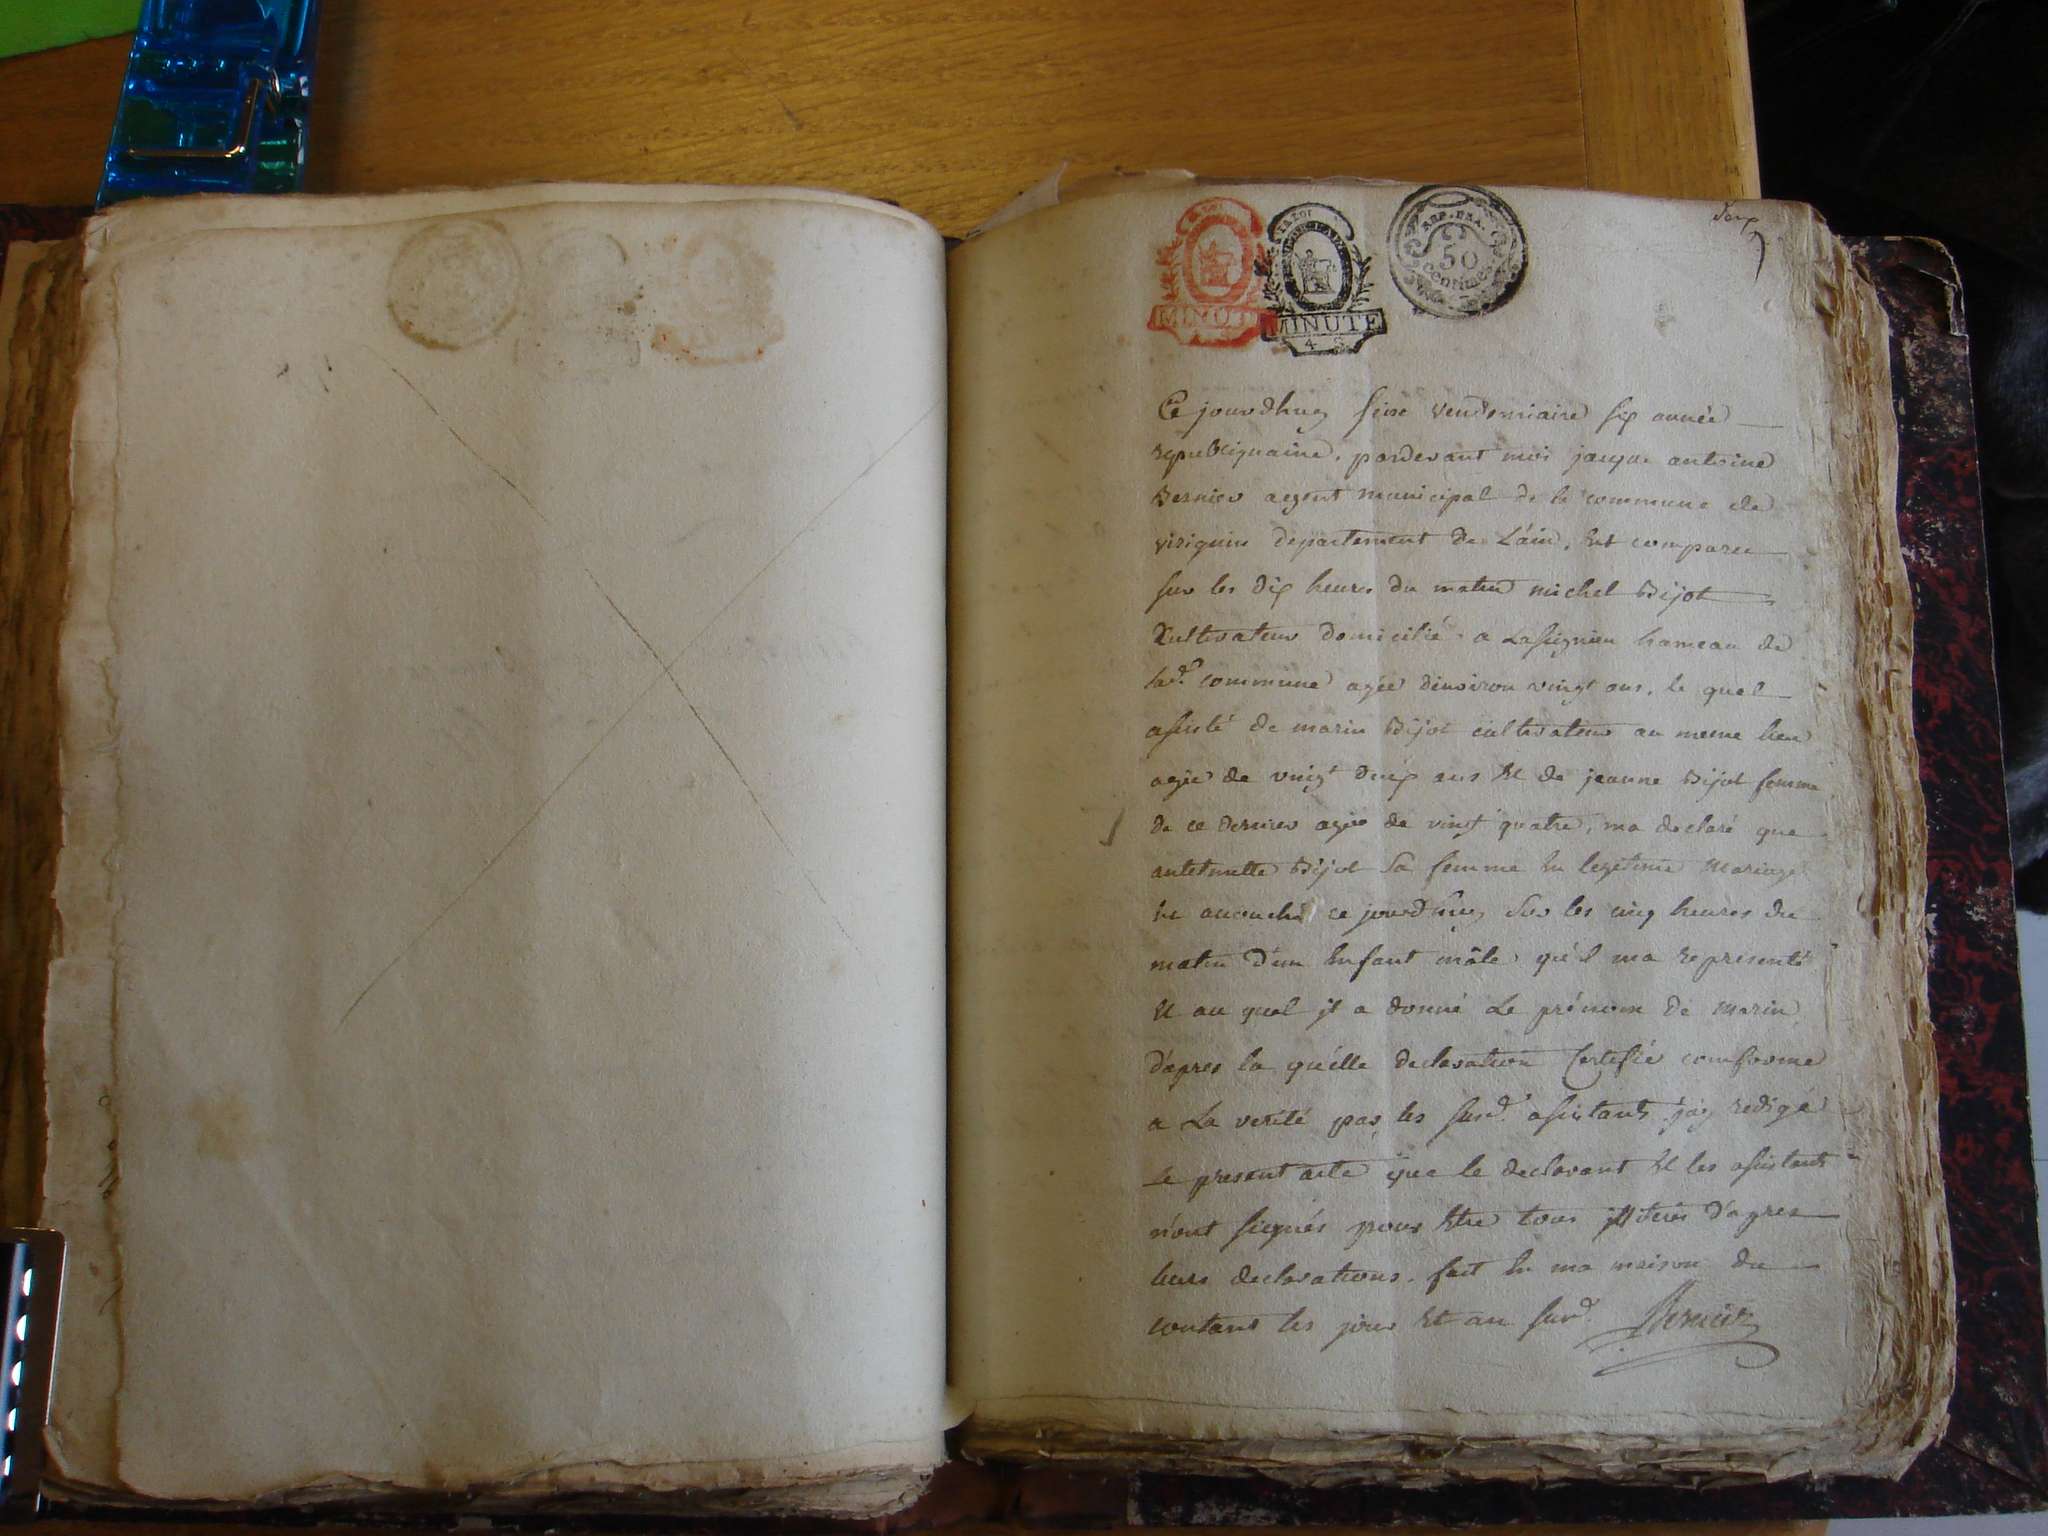 deux
LA LOI
MINUTE
LA LOI
MINUTE
4 S
REP. FRA.
50
centimes
Ce jourdhuy seise vendemiaire six année
republiquaine, pardevant moi jacque antoine
Bernier agent municipal de la commune de
virignin departement de L'ain, Est comparu
sur les dix heures du matin michel Bijot
Cultivateur domicilié a Lassignieu hameau de
lad. commune agée denviron vingt ans, le quel
assisté de marin Bijot cultivateur au meme lieu
agée de vingt deux ans Et de jeanne Bijot femme
de ce dernier agée de vingt quatre, ma declaré que
antelmette Bijot sa femme En legitime mariage
est accouché ce jourdhuy sur les cinq heures du
matin d'un Enfant mâle qu'il ma representé
Et au quel jl a donné Le prénom de marin,
d'apres la qu'elle declaration Certifié conforme
a La verité par les susd. assistants j'ay redigé
Le present acte que le declarant Et les assistants
n'ont signés pour Etre tous jlliterés d'apres
leurs declarations. fait En ma maison du
contant les jour Et an susd. Bernier